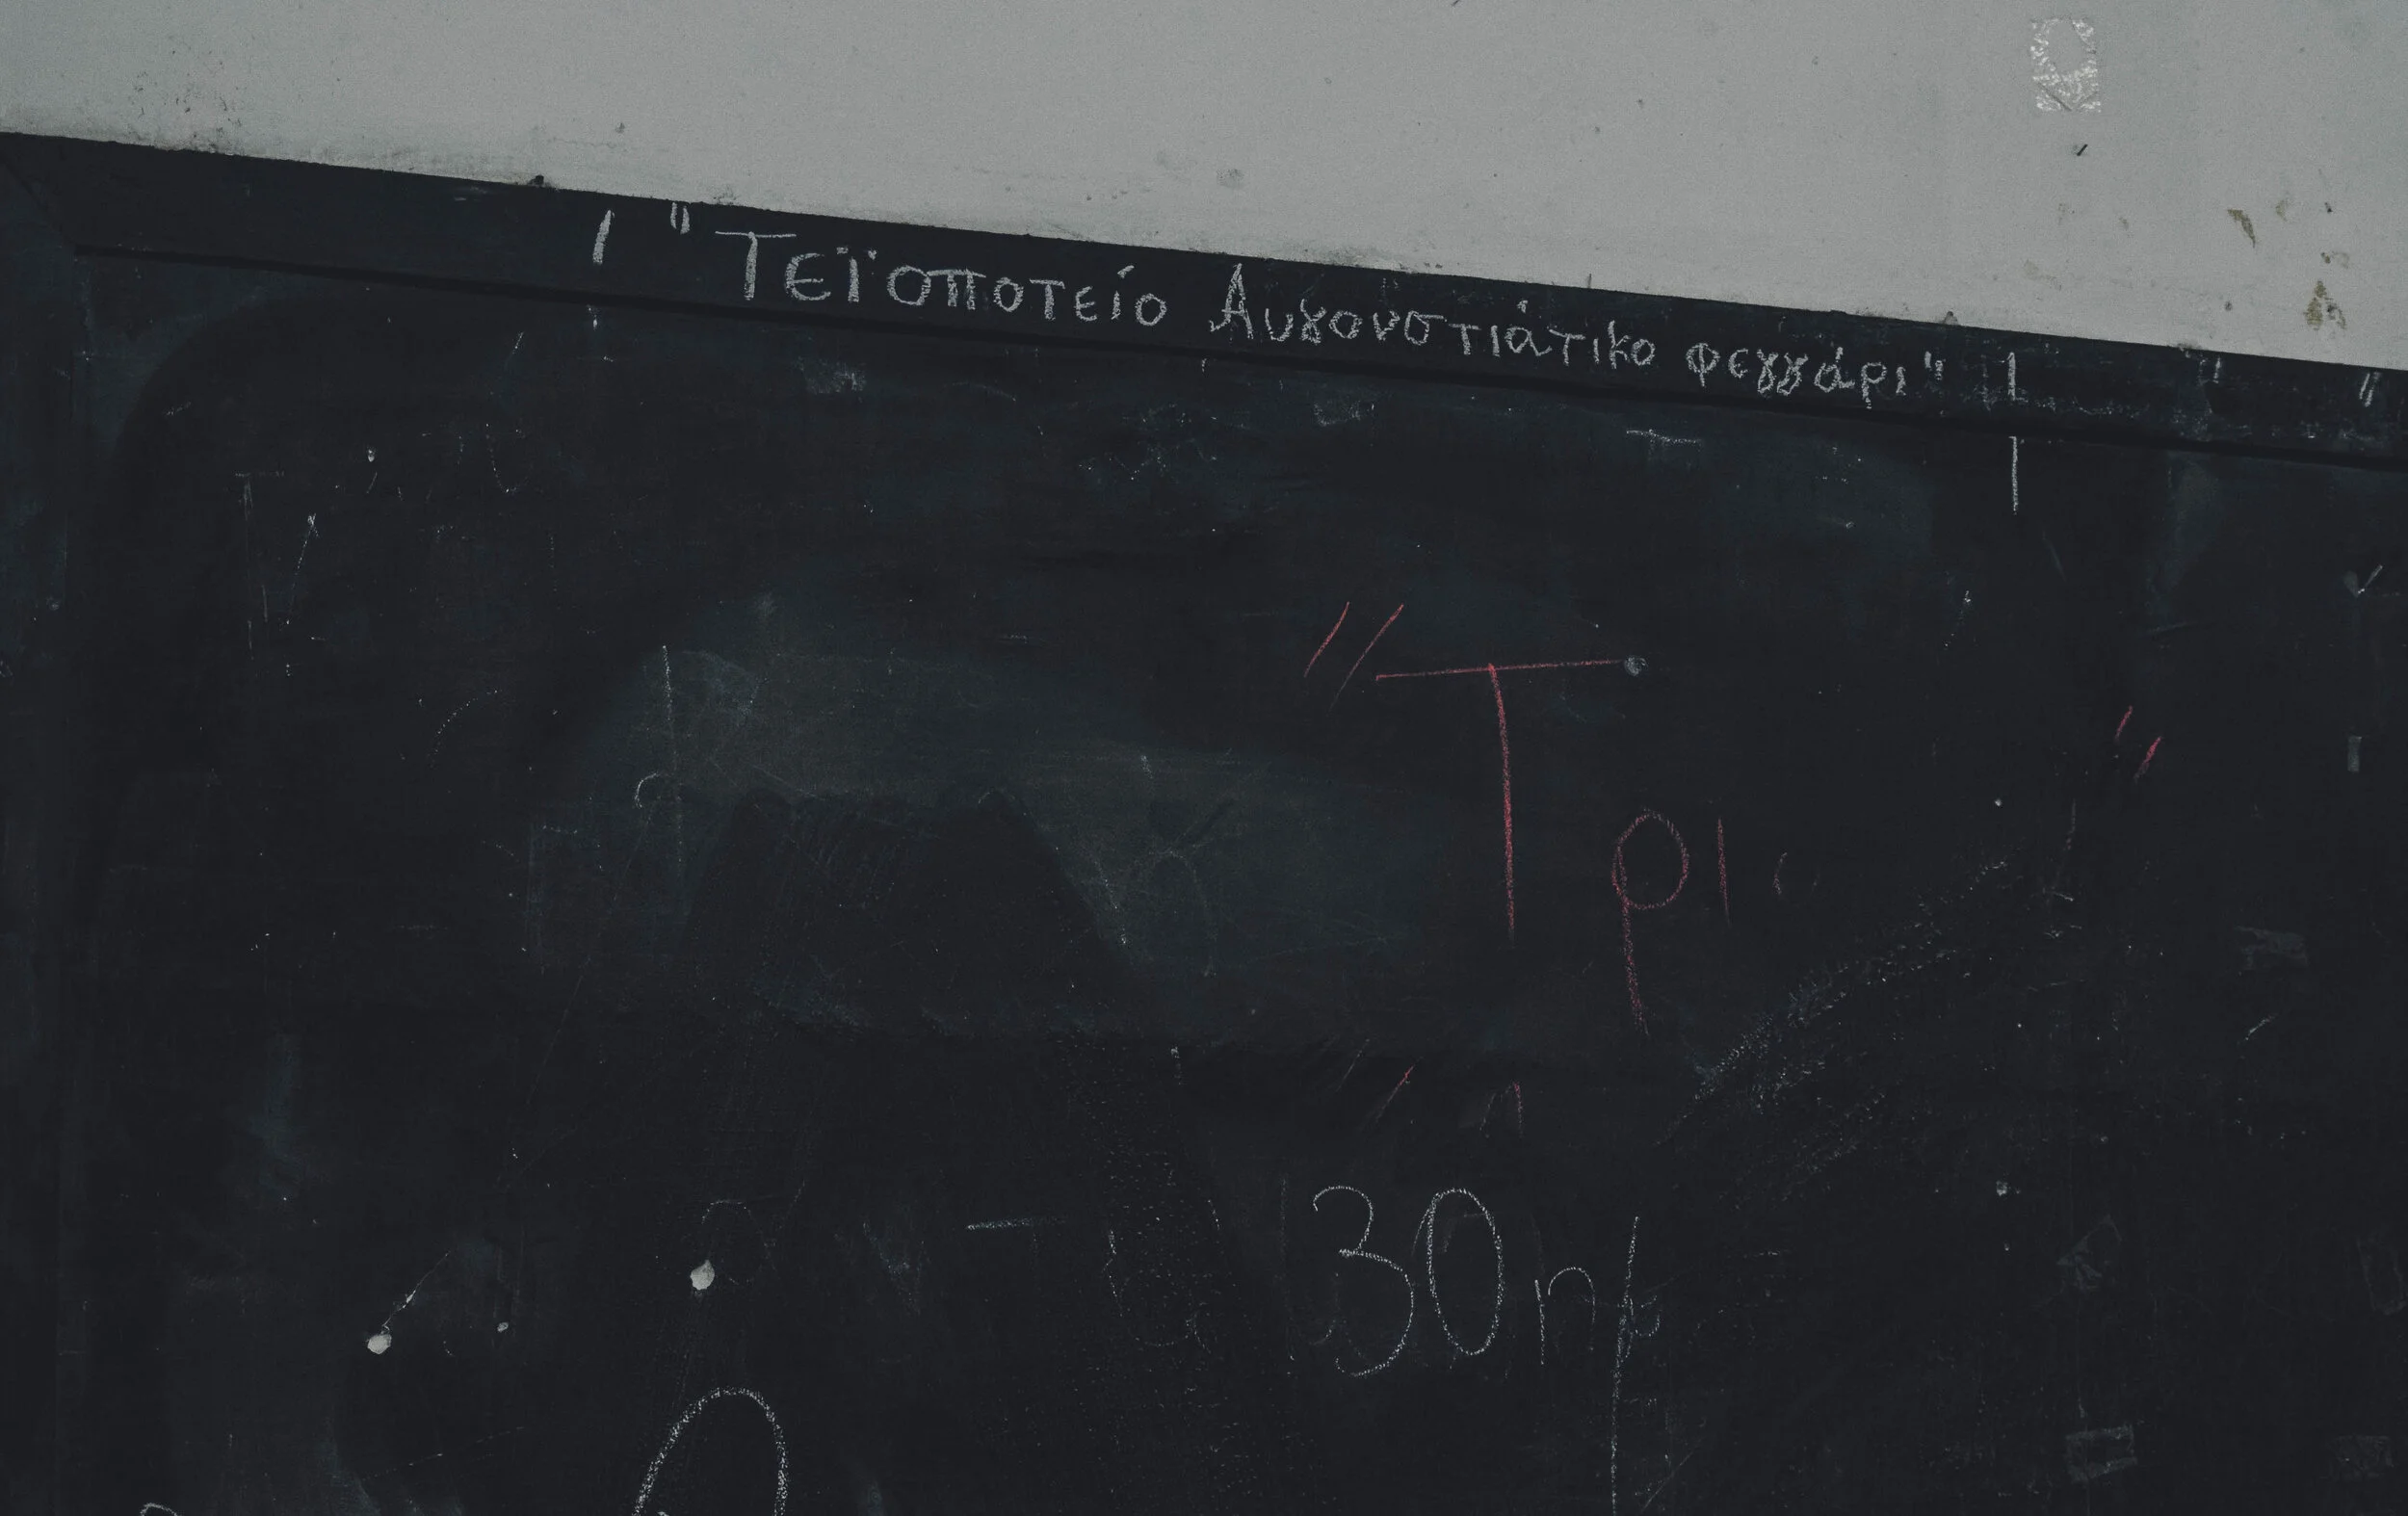 "Τεϊοποτείο Αυγουστιάτικο φεγγάρι"
"Τρι
30